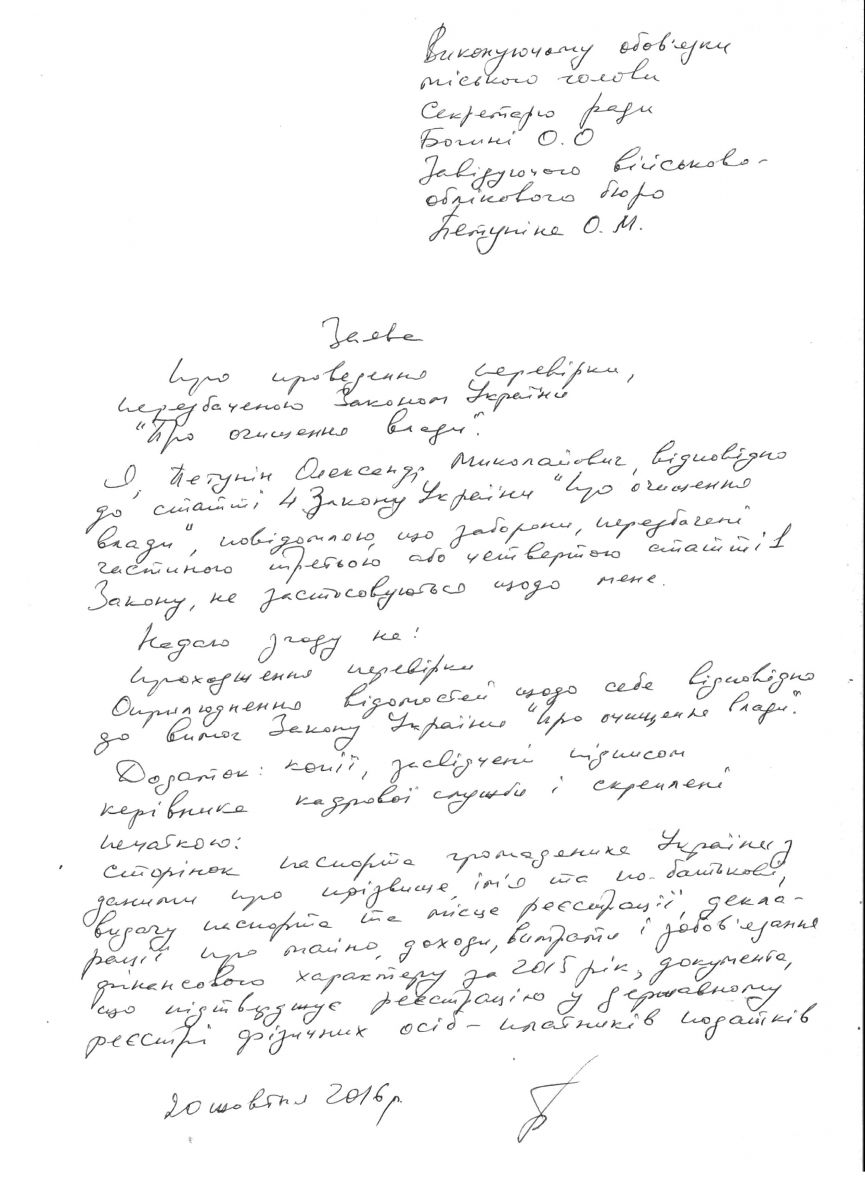 Виконуючому обов'язки
міського голови
Секретарю ради
Богині О.О
Завідуючого військово-
облікового бюро
Петуніна О.М.
Заява
про проведення перевірки,
передбаченою Законом України
"Про очищення влади".
Я, Петунін Олександр Миколайович, відповідно
до статті 4 Закону України "Про очищення
влади", повідомляю, що заборони, передбачені
частиною третьою або четвертою статті 1
Закону, не застосовуються щодо мене.
Надаю згоду на:
проходження перевірки
Оприлюднення відомостей щодо себе відповідно
до вимог Закону України "Про очищення влади".
Додаток: копії, засвідчені підписом
керівника кадрової служби і скреплені
печаткою:
сторінок паспорта громадянина України з
даними про прізвище, ім'я та по-батькові,
видачу паспорта та місце реєстрації, декла-
рації про майно, доходи, витрати і зобов'язання
фінансового характеру за 2015 рік, документа,
що підтверджує реєстрацію у Державному
реєстрі фізичних осіб - платників податків
20 жовтня 2016 р.